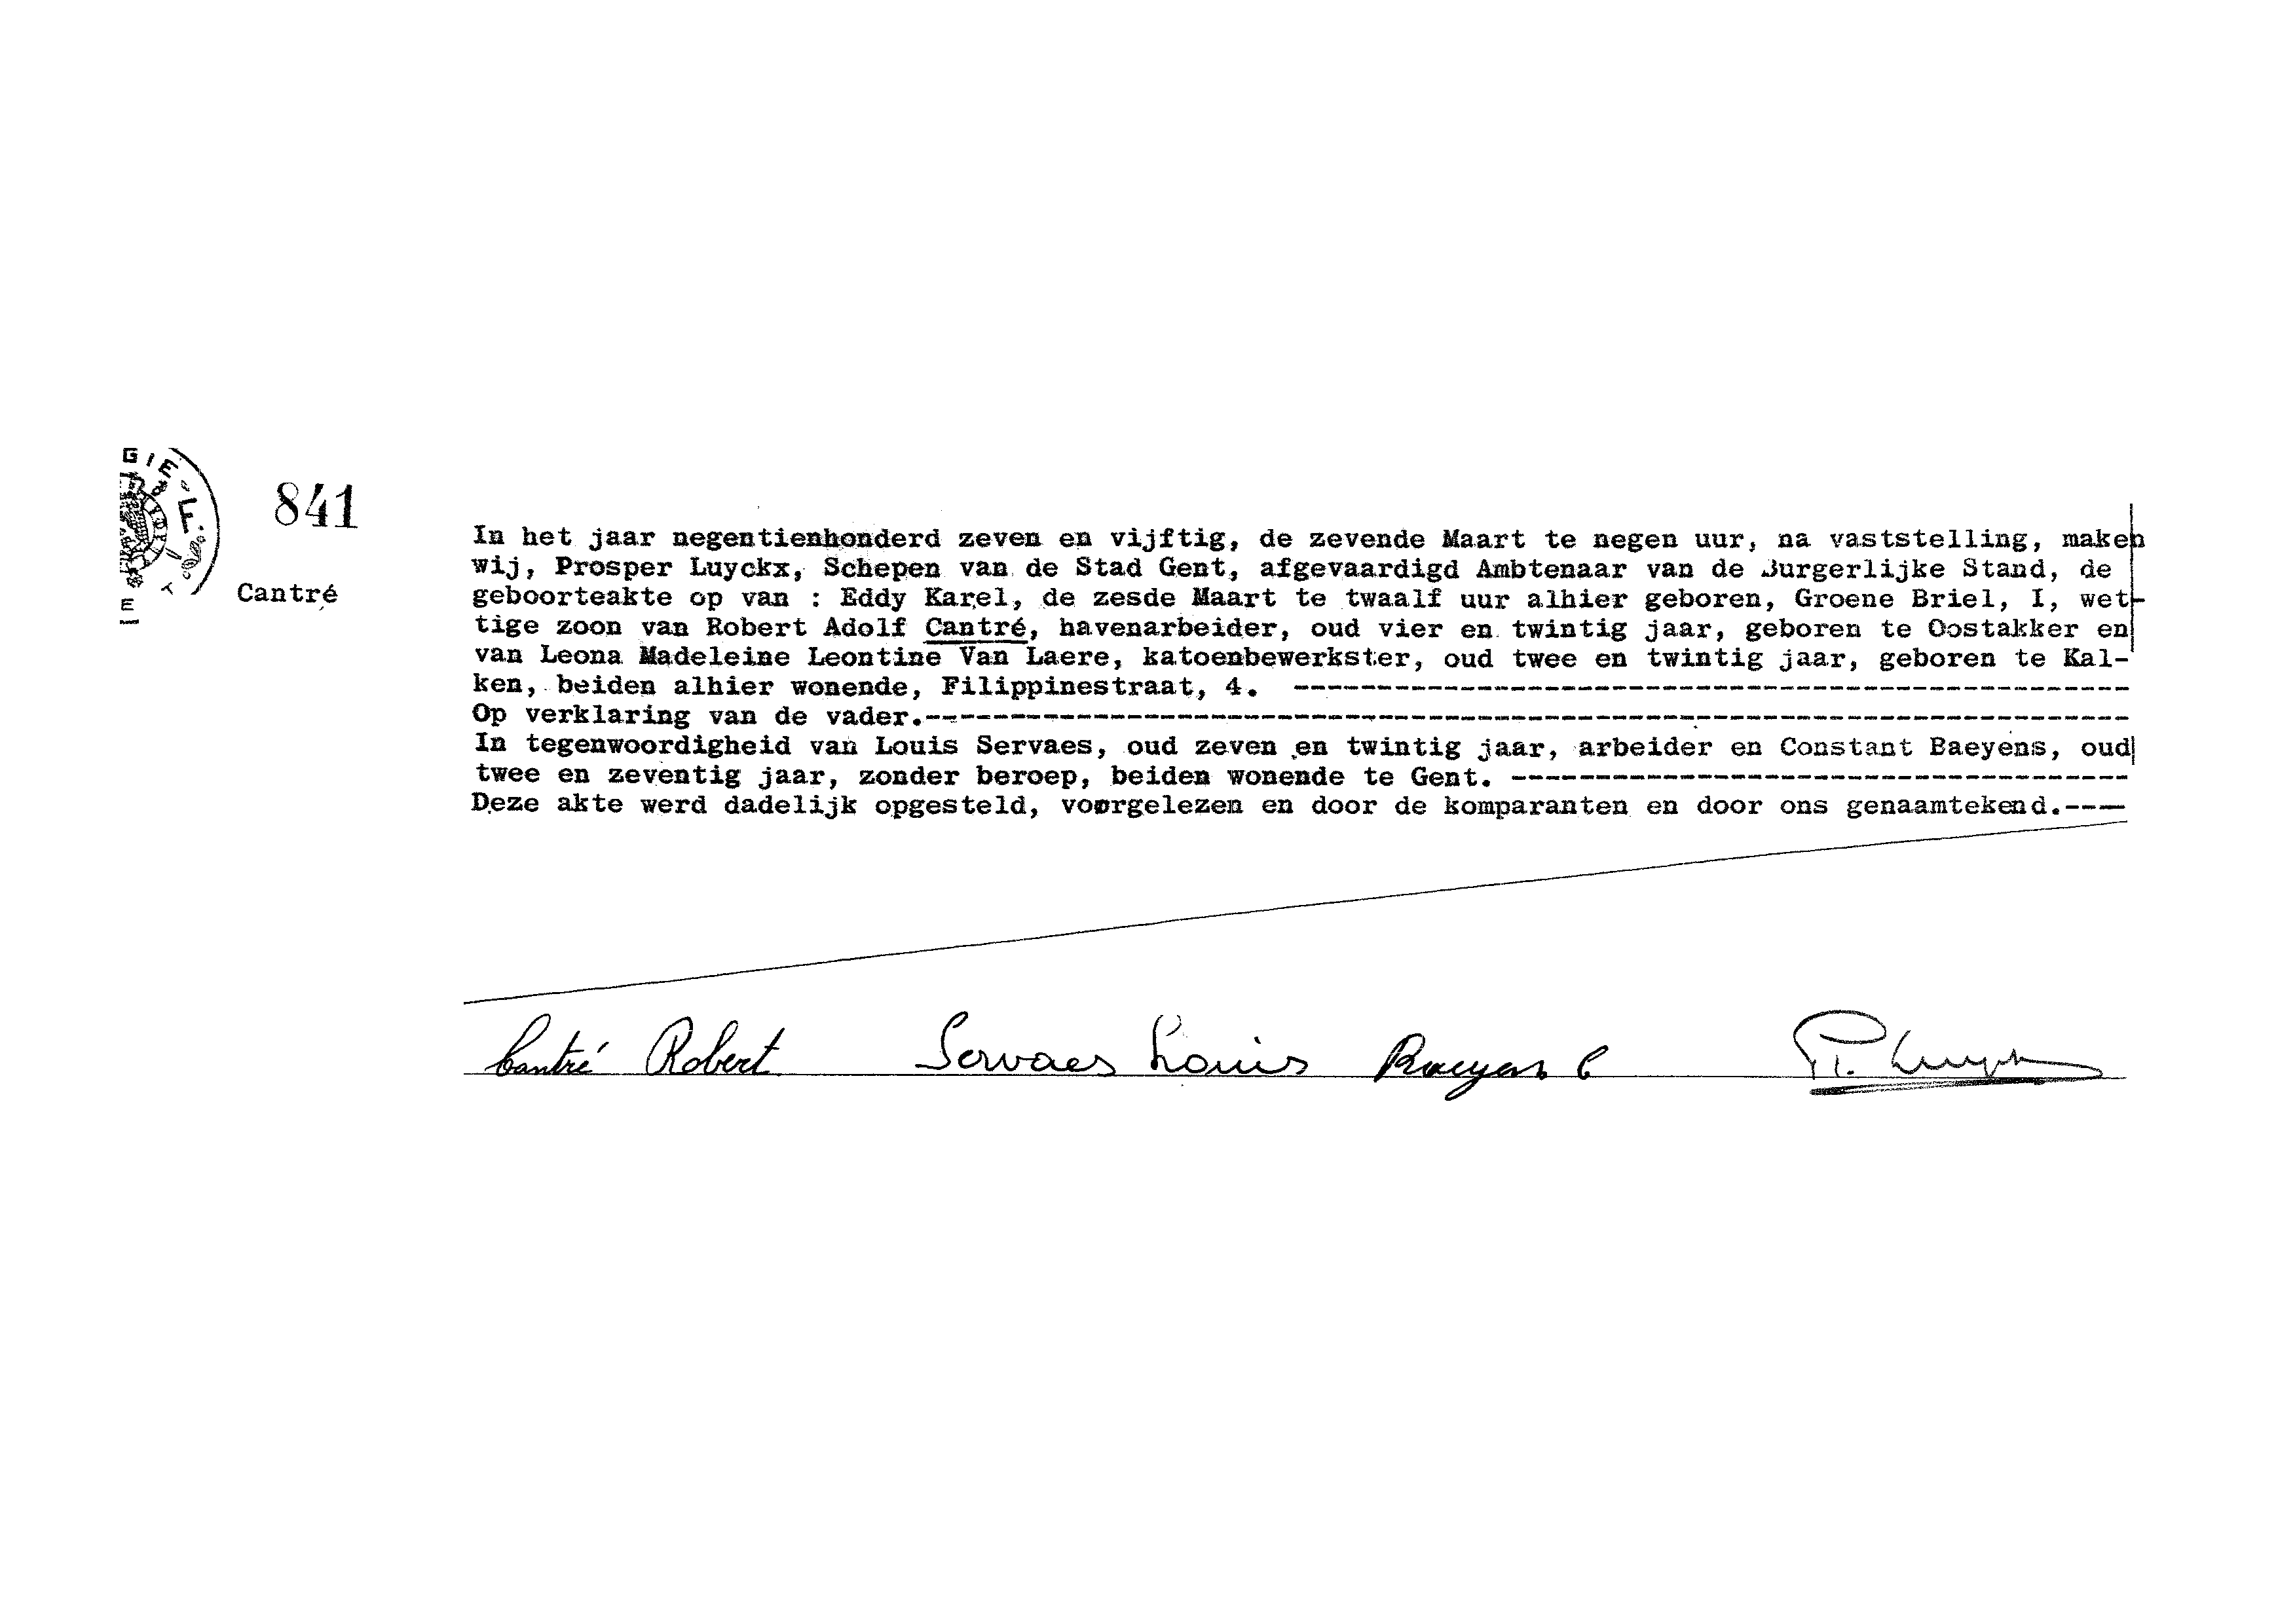 GIE
F.
841
Cantré
In het jaar negentienhonderd zeven en vijftig, de zevende Maart te negen uur, na vaststelling, maken
wij, Prosper Luyckx, Schepen van de Stad Gent, afgevaardigd Ambtenaar van de Burgerlijke Stand, de
geboorteakte op van : Eddy Karel, de zesde Maart te twaalf uur alhier geboren, Groene Briel, I, wet-
tige zoon van Robert Adolf Cantré, havenarbeider, oud vier en twintig jaar, geboren te Oostakker en
van Leona Madeleine Leontine Van Laere, katoenbewerkster, oud twee en twintig jaar, geboren te Kal-
ken, beiden alhier wonende, Filippinestraat, 4. --------------------------------------------------
Op verklaring van de vader.------------------------------------------------------------------------
In tegenwoordigheid van Louis Servaes, oud zeven en twintig jaar, arbeider en Constant Baeyens, oud
twee en zeventig jaar, zonder beroep, beiden wonende te Gent. -------------------------------------
Deze akte werd dadelijk opgesteld, voorgelezen en door de komparanten en door ons genaamtekend.----
Cantré Robert Servaes Louis Baeyens C P. Luyckx